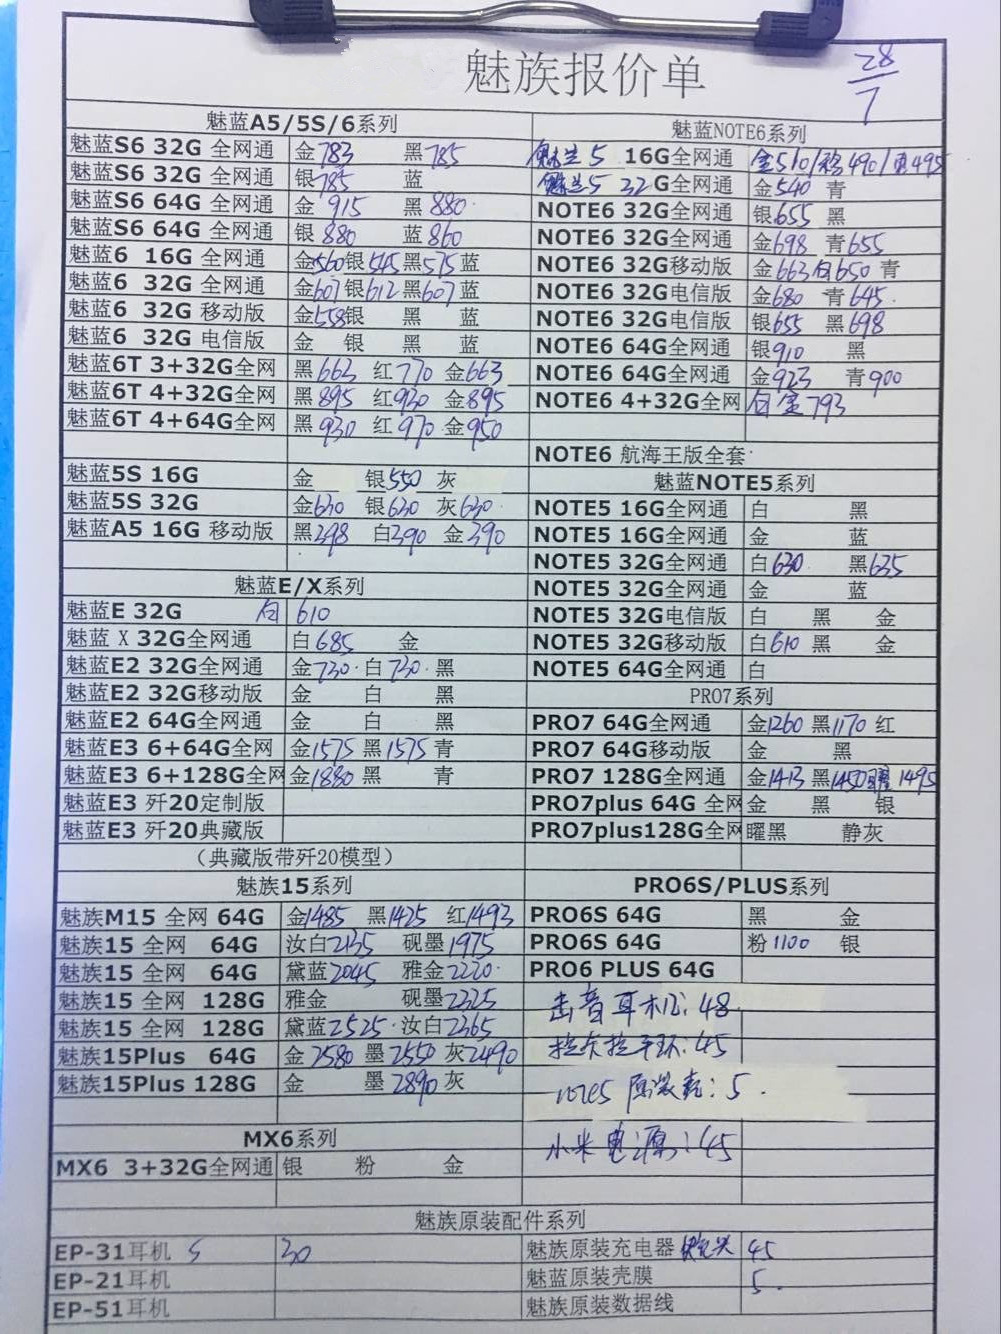 魅族报价单
28/7
魅蓝A5/5S/6系列
魅蓝S6 32G 全网通 金783 黑785
魅蓝S6 32G 全网通 银785 蓝
魅蓝S6 64G 全网通 金915 黑880
魅蓝S6 64G 全网通 银880 蓝860
魅蓝6 16G 全网通 金560银545黑575蓝
魅蓝6 32G 全网通 金607银612黑607蓝
魅蓝6 32G 移动版 金558银 黑 蓝
魅蓝6 32G 电信版 金 银 黑 蓝
魅蓝6T 3+32G全网 黑663 红770 金663
魅蓝6T 4+32G全网 黑895 红930 金895
魅蓝6T 4+64G全网 黑930 红970 金950
魅蓝5S 16G 金 银550 灰
魅蓝5S 32G 金630 银630 灰630
魅蓝A5 16G 移动版 黑398 白390 金390
魅蓝E/X系列
魅蓝E 32G 白 610
魅蓝 X 32G全网通 白685 金
魅蓝E2 32G全网通 金730 白730 黑
魅蓝E2 32G移动版 金 白 黑
魅蓝E2 64G全网通 金 白 黑
魅蓝E3 6+64G全网 金1575 黑1575 青
魅蓝E3 6+128G全网 金1880 黑 青
魅蓝E3 歼20定制版
魅蓝E3 歼20典藏版
（典藏版带歼20模型）
魅族15系列
魅族M15 全网 64G 金1485 黑1425 红1493
魅族15 全网 64G 汝白2135 砚墨1975
魅族15 全网 64G 黛蓝2045 雅金2220
魅族15 全网 128G 雅金 砚墨2325
魅族15 全网 128G 黛蓝2525 汝白2365
魅族15Plus 64G 金2580 墨2550 灰2490
魅族15Plus 128G 金 墨2890 灰
MX6系列
MX6 3+32G全网通 银 粉 金
魅蓝NOTE6系列
魅兰5 16G全网通 金510/粉490/白495
魅兰5 32G全网通 金540 青
NOTE6 32G全网通 银655 黑
NOTE6 32G全网通 金698 青655
NOTE6 32G移动版 金663白650 青
NOTE6 32G电信版 金680 青645
NOTE6 32G电信版 银655 黑698
NOTE6 64G全网通 银910 黑
NOTE6 64G全网通 金923 青900
NOTE6 4+32G全网 白金793
NOTE6 航海王版全套
魅蓝NOTE5系列
NOTE5 16G全网通 白 黑
NOTE5 16G全网通 金 蓝
NOTE5 32G全网通 白630 黑635
NOTE5 32G全网通 金 蓝
NOTE5 32G电信版 白 黑 金
NOTE5 32G移动版 白610 黑 金
NOTE5 64G全网通 白
PRO7系列
PRO7 64G全网通 金1260 黑1170 红
PRO7 64G移动版 金 黑
PRO7 128G全网通 金1413 黑1450曜1495
PRO7plus 64G 全网 金 黑 银
PRO7plus128G全网 曜黑 静灰
PRO6S/PLUS系列
PRO6S 64G 黑 金
PRO6S 64G 粉1100 银
PRO6 PLUS 64G
击音耳机: 48
拉卡拉手环: 45
note5 原装壳: 5
小米电源: 45
魅族原装配件系列
EP-31耳机 S 30
EP-21耳机
EP-51耳机
魅族原装充电器 45
魅蓝原装壳膜 5
魅族原装数据线